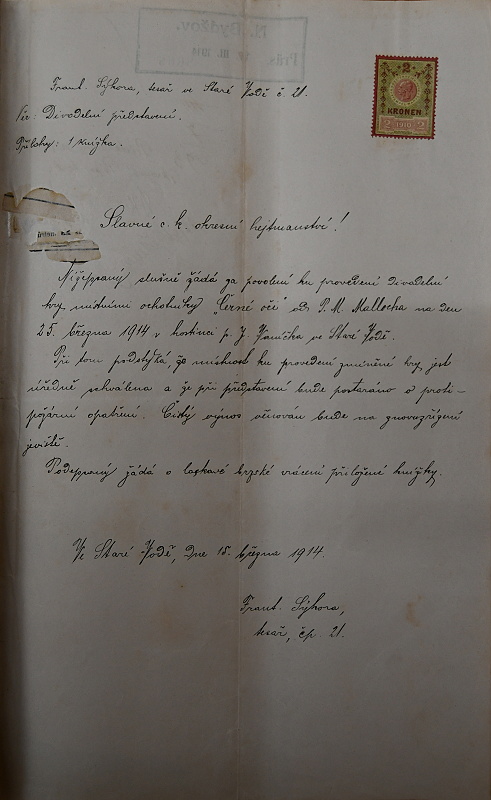 N. Bydžov.
Frant. Sýkora, tesař ve Staré Vodě č. 21.
Divadelní představení.
Přílohy: 1 knížka.
2
KRONEN
2 1910 2
Slavné c. k. okresní hejtmanství!
Nížepsaný slušně žádá za povolení ku provedení divadelní
hry místními ochotníky "Černé oči" od P. M. Mallocha na den
25. března 1914 v hostinci p. J. Vaníčka ve Staré Vodě.
Při tom podotýká, že místnost ku provedení zmíněné hry jest
úředně schválena a že při představení bude postaráno o proti-
požární opatření. Čistý výnos věnován bude na znovuzřízení
jeviště.
Podepsaný žádá o laskavé brzské vrácení přiložené knížky.
Ve Staré Vodě, dne 15. března 1914.
Frant. Sýkora,
tesař, čp. 21.